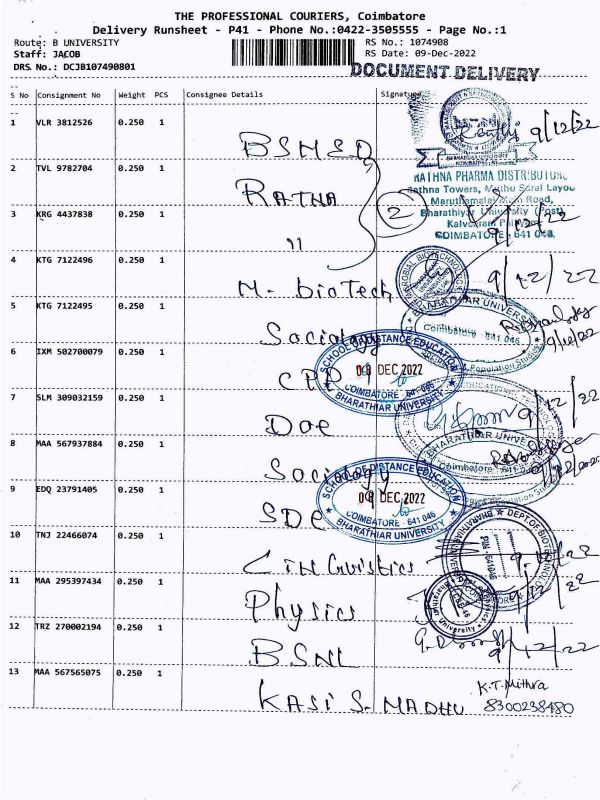 THE PROFESSIONAL COURIERS, Coimbatore
Delivery Runsheet - P41 - Phone No.:0422-3505555 - Page No.:1
Route: B UNIVERSITY
Staff: JACOB
DRS No.: DCJB107490801
RS No.: 1074908
RS Date: 09-Dec-2022
DOCUMENT DELIVERY
S No Consignment No Weight PCS Consignee Details Signature
1 VLR 3812526 0.250 1
9/12/22
2 TVL 9782704 0.250 1 RATNA
RATHNA PHARMA DISTRIBUTORS
Rathna Towers,
Maruthamalai Main Road,
Bharathiyar University (Post)
COIMBATORE - 641 046.
3 KRG 4437838 0.250 1 "
2
9/12/22
4 KTG 7122496 0.250 1 M- bioTech
9/12/22
5 KTG 7122495 0.250 1 Sociology
BHARATHIAR UNIVERSITY
Coimbatore 641 046
Population Studies
9/12/22
6 IXM 502700079 0.250 1
SCHOOL OF DISTANCE EDUCATION
DEC 2022
COIMBATORE - 641 046
BHARATHIAR UNIVERSITY
7 SLM 309032159 0.250 1 Doe
9/12/22
8 MAA 567937884 0.250 1 Sociology
BHARATHIAR UNIVERSITY
Coimbatore 641 046
9 EDQ 23791405 0.250 1 SDE
SCHOOL OF DISTANCE EDUCATION
DEC 2022
COIMBATORE - 641 046
BHARATHIAR UNIVERSITY
10 TNJ 22466074 0.250 1 Linguistics
9.12.22
11 MAA 295397434 0.250 1 Physics
12 TRZ 270002194 0.250 1 BSNL
9/12/22
13 MAA 567565075 0.250 1 KASI S. MADHU
K.T. Mithra
8300238480